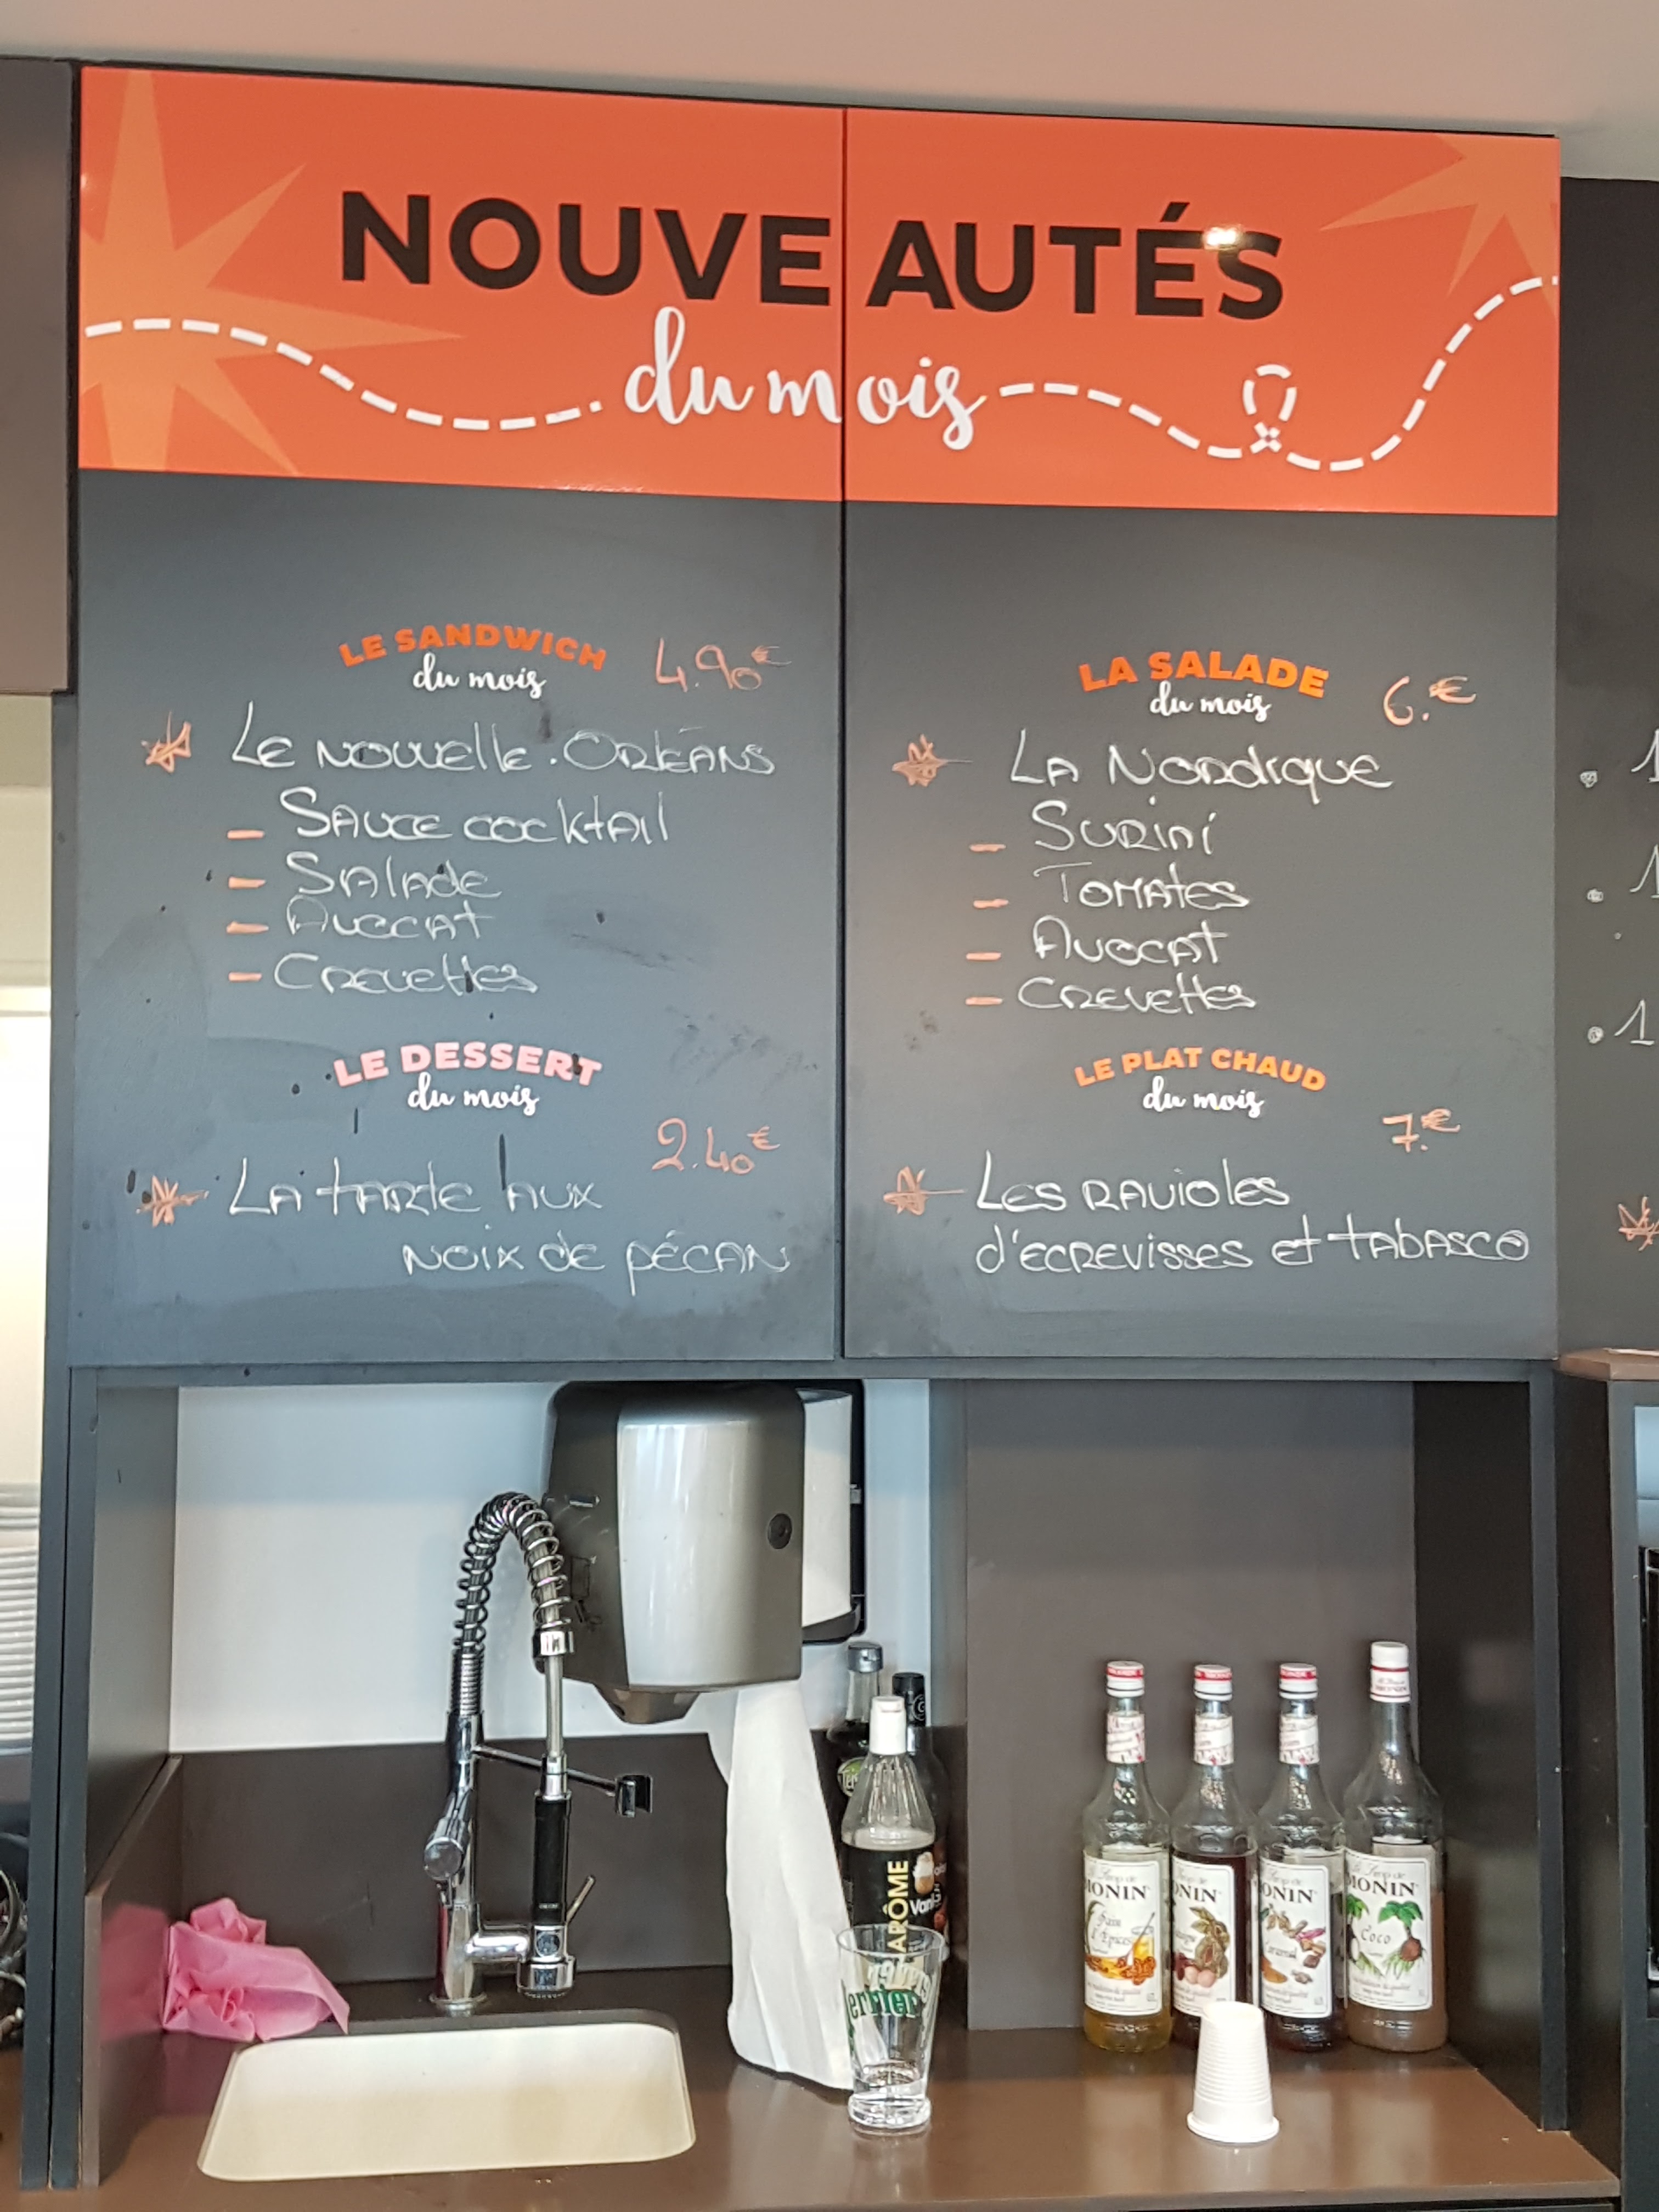 NOUVEAUTÉS
du mois
LE SANDWICH
du mois
4.90€
Le Nouvelle.Orléans
- Sauce cocktail
- Salade
- Avocat
- Crevettes
LE DESSERT
du mois
2.40€
La tarte aux
noix de pécan
LA SALADE
du mois
6.€
La Nordique
- Surini
- Tomates
- Avocat
- Crevettes
LE PLAT CHAUD
du mois
7.€
Les ravioles
d'ecrevisses et tabasco
1
1
1
ARÔME
MONIN
MONIN
MONIN
MONIN
Coco